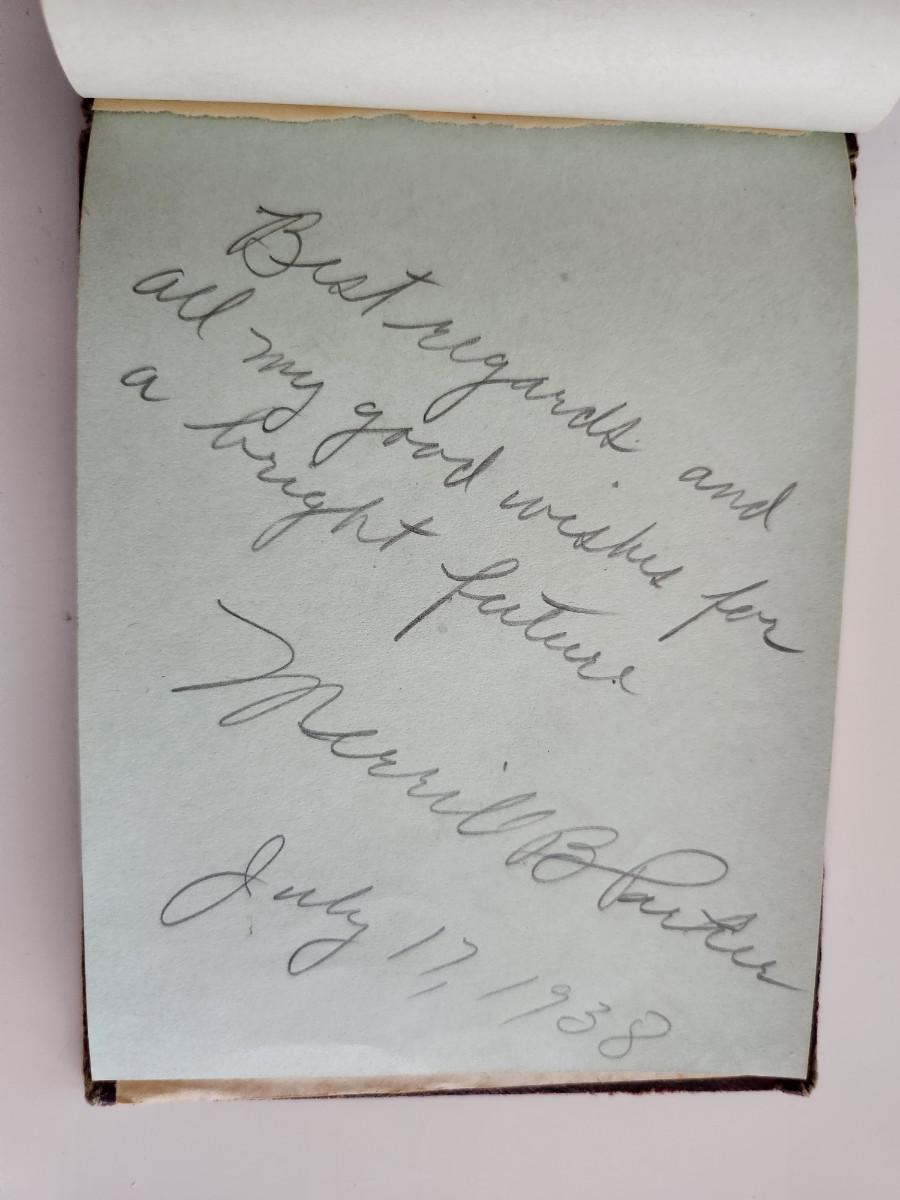 Best regards and
all my good wishes for
a bright future
Merrill B Parker
July 17, 1938